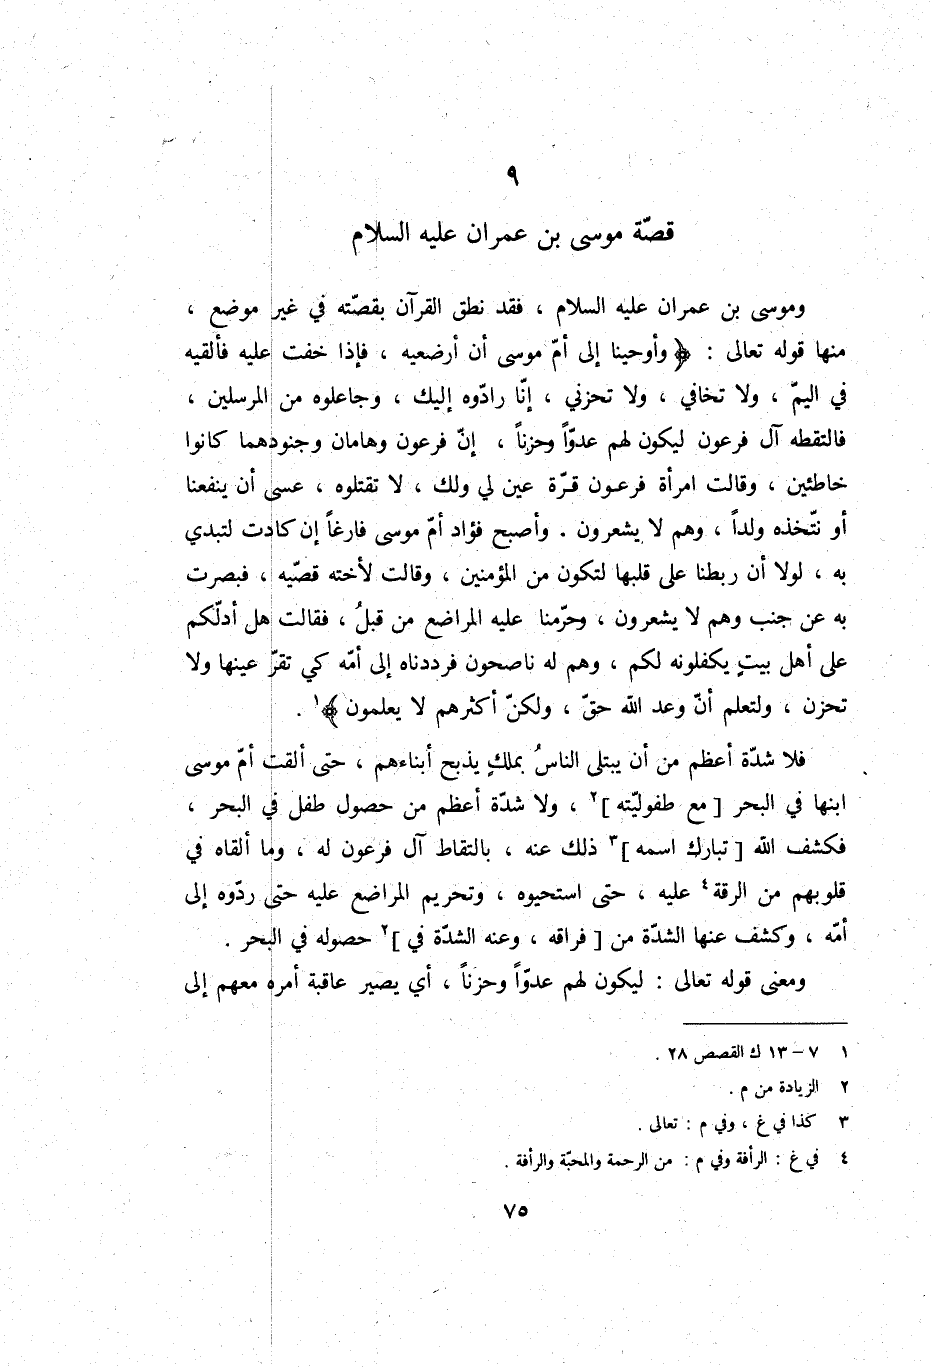 ٩
قصّة موسى بن عمران عليه السلام
وموسى بن عمران عليه السلام ، فقد نطق القرآن بقصّته في غير موضع ،
منها قوله تعالى : ﴿ وأوحينا إلى أمّ موسى أن أرضعيه ، فإذا خفت عليه فألقيه
في اليمّ ، ولا تخافي ، ولا تحزني ، إنّا رادّوه إليك ، وجاعلوه من المرسلين ،
فالتقطه آل فرعون ليكون لهم عدوّاً وحزناً ، إنّ فرعون وهامان وجنودهما كانوا
خاطئين ، وقالت امرأة فرعون قرّة عين لي ولك ، لا تقتلوه ، عسى أن ينفعنا
أو نتّخذه ولداً ، وهم لا يشعرون . وأصبح فؤاد أمّ موسى فارغاً إن كادت لتبدي
به ، لولا أن ربطنا على قلبها لتكون من المؤمنين ، وقالت لأخته قصّيه ، فبصرت
به عن جنب وهم لا يشعرون ، وحرّمنا عليه المراضع من قبلُ ، فقالت هل أدلّكم
على أهل بيتٍ يكفلونه لكم ، وهم له ناصحون فرددناه إلى أمّه كي تقرّ عينها ولا
تحزن ، ولتعلم أنّ وعد الله حقّ ، ولكنّ أكثرهم لا يعلمون ﴾١ .
فلا شدّة أعظم من أن يبتلى الناسُ بملكٍ يذبح أبناءهم ، حتى ألقت أمّ موسى
ابنها في البحر [ مع طفوليّته ]٢ ، ولا شدّة أعظم من حصول طفل في البحر ،
فكشف الله [ تبارك اسمه ]٣ ذلك عنه ، بالتقاط آل فرعون له ، وما ألقاه في
قلوبهم من الرقة٤ عليه ، حتى استحيوه ، وتحريم المراضع عليه حتى ردّوه إلى
أمّه ، وكشف عنها الشدّة من [ فراقه ، وعنه الشدّة في ]٢ حصوله في البحر .
ومعنى قوله تعالى : ليكون لهم عدوّاً وحزناً ، أي يصير عاقبة أمره معهم إلى
١ ٧ – ١٣ ك القصص ٢٨ .
٢ الزيادة من م .
٣ كذا في غ ، وفي م : تعالى .
٤ في غ : الرأفة وفي م : من الرحمة والمحبّة والرأفة .
٧٥